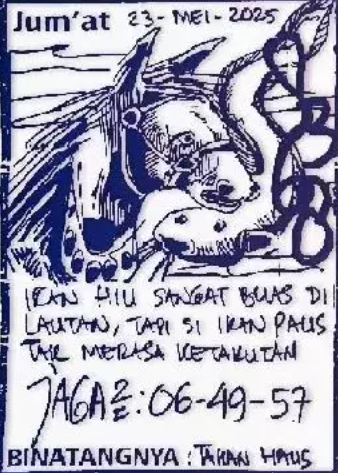 Jum'at 23-MEI-2025
IKAN HIU SANGAT BUAS DI
LAUTAN, TAPI SI IKAN PAUS
TAK MERASA KETAKUTAN
JAGA2 : 06-49-57
BINATANGNYA : TAHAN HAUS